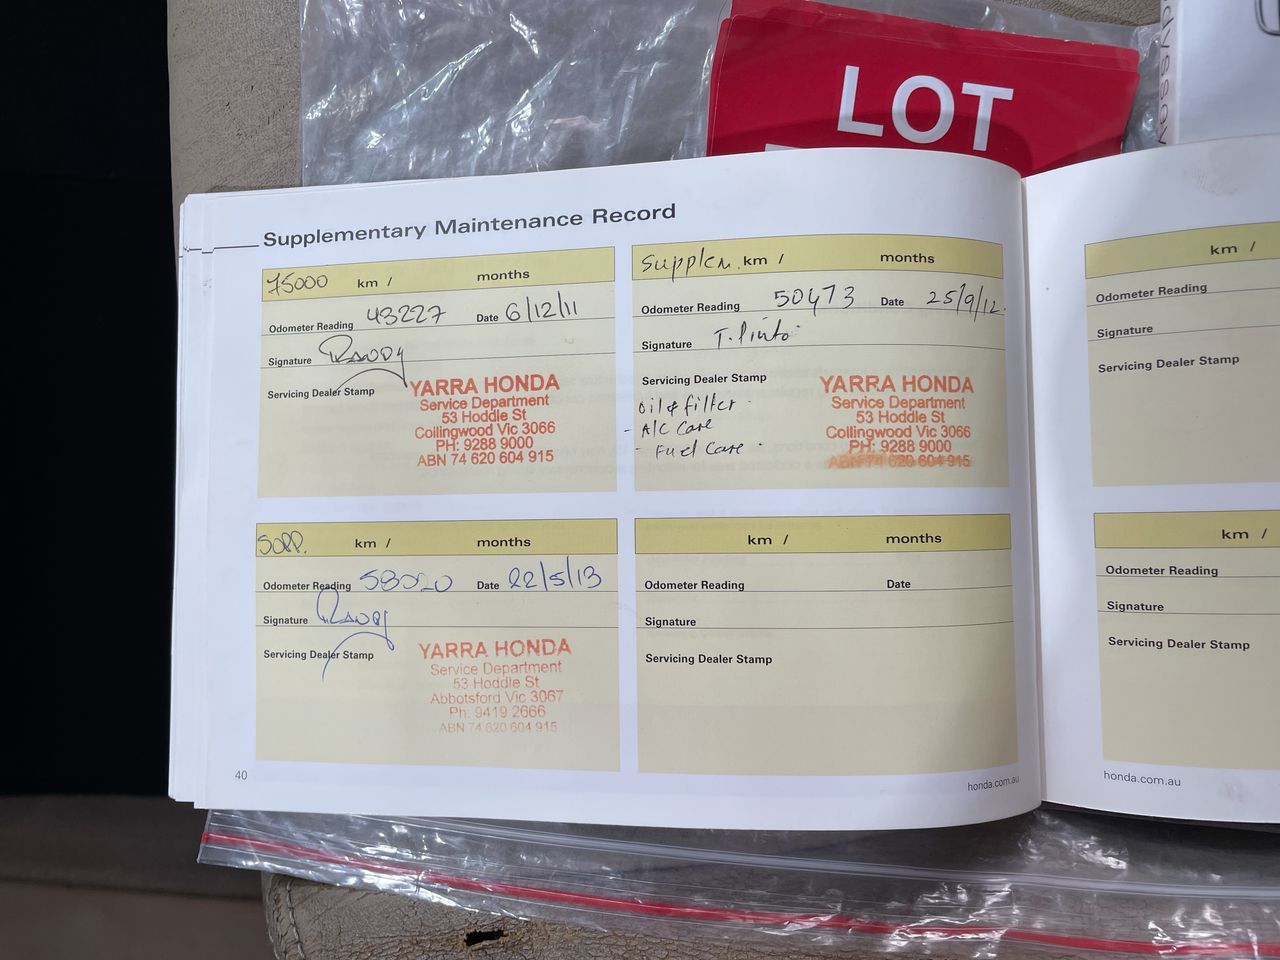 LOT
Supplementary Maintenance Record
75000 km / months
Odometer Reading 43227 Date 6/12/11
Signature Randy
Servicing Dealer Stamp
YARRA HONDA
Service Department
53 Hoddle St
Collingwood Vic 3066
PH: 9288 9000
ABN 74 620 604 915
Supplem. km / months
Odometer Reading 50473 Date 25/9/12.
Signature T. Pinto
Servicing Dealer Stamp
Oil & filter
- A/C Care
- Fuel Care
YARRA HONDA
Service Department
53 Hoddle St
Collingwood Vic 3066
PH: 9288 9000
ABN 74 620 604 915
SUPP. km / months
Odometer Reading 58020 Date 22/5/13
Signature Randy
Servicing Dealer Stamp
YARRA HONDA
Service Department
53 Hoddle St
Abbotsford Vic 3067
Ph: 9419 2666
ABN 74 620 604 915
km / months
Odometer Reading Date
Signature
Servicing Dealer Stamp
40
honda.com.au
km /
Odometer Reading
Signature
Servicing Dealer Stamp
km /
Odometer Reading
Signature
Servicing Dealer Stamp
honda.com.au